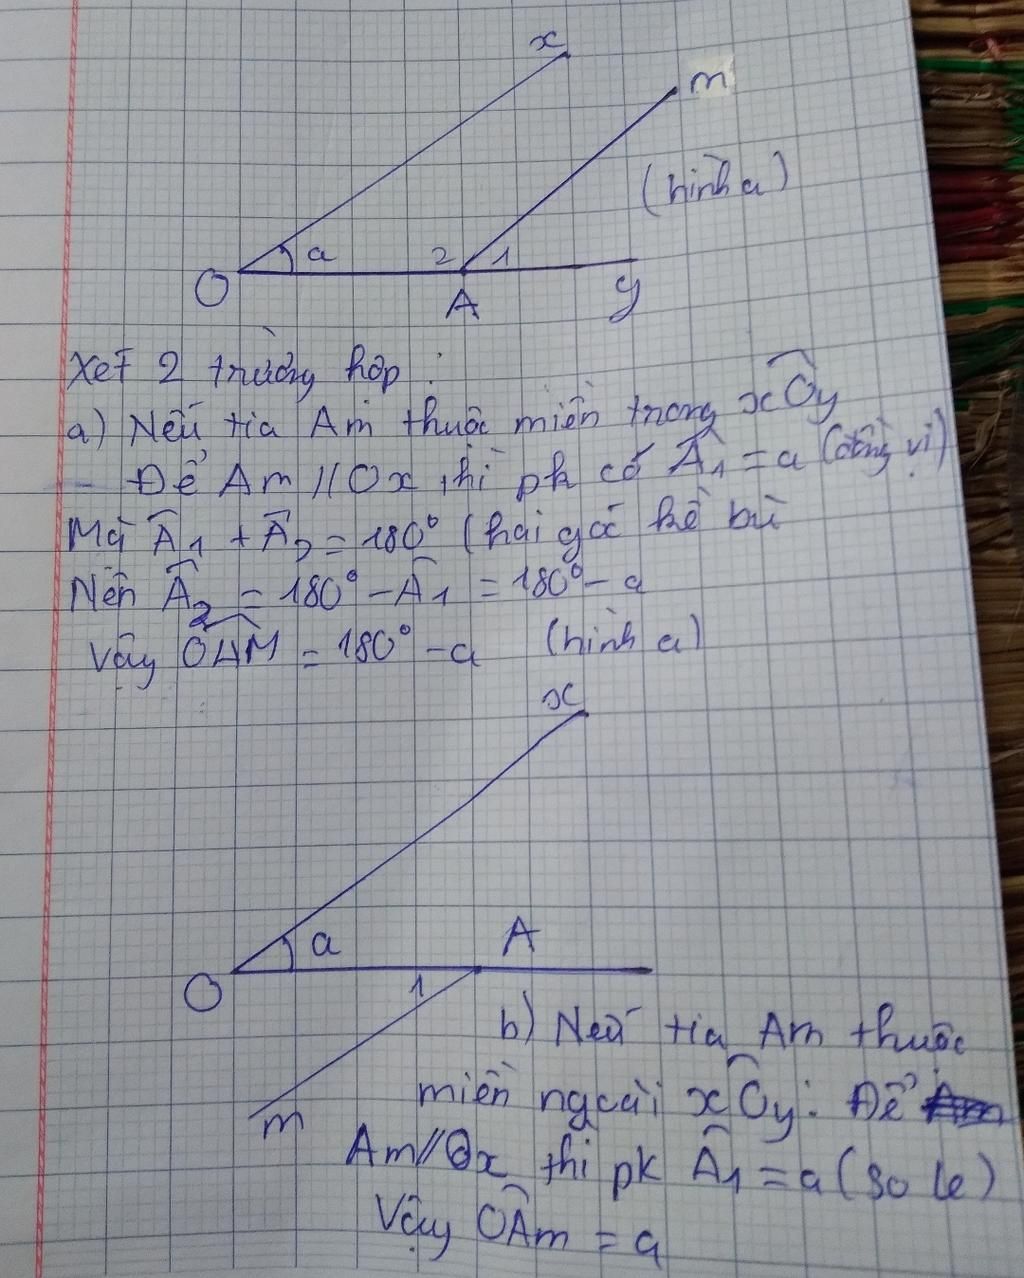 x
m
(hình a)
a
2 1
O
A
y
Xét 2 trường hợp :
a) Nếu tia Am thuộc miền trong xÔy
- Để Am // Ox thì pk có Â1 = a (đồng vị)
Mà Â1 + Â2 = 180° (hai góc kề bù
Nên Â2 = 180° - Â1 = 180° - a
Vậy OÂM = 180° - a (hình a)
x
a
A
O
1
m
b) Nếu tia Am thuộc
miền ngoài xÔy. Để
Am // Ox thì pk Â1 = a (so le)
Vậy OÂm = a